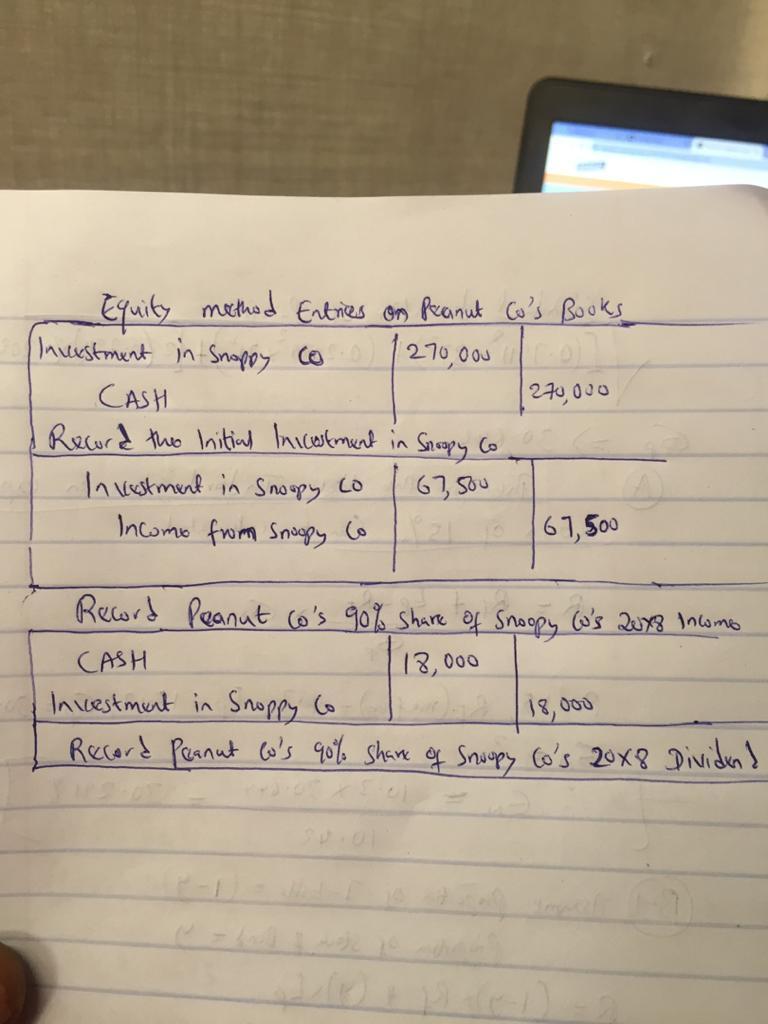 Equity method Entries on Peanut Co's Books
Investment in Snoppy Co 270,000
CASH 270,000
Record the Initial Investment in Snoopy Co
Investment in Snoopy Co 67,500
Income from Snoopy Co 67,500
Record Peanut Co's 90% Share of Snoopy Co's 20X8 Income
CASH 18,000
Investment in Snoppy Co 18,000
Record Peanut Co's 90% Share of Snoopy Co's 20X8 Dividend